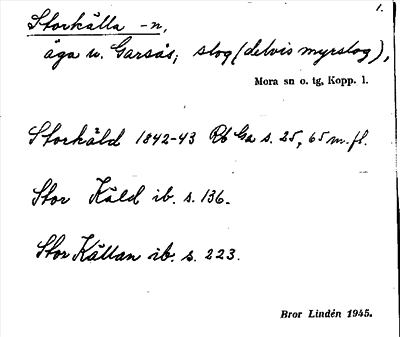 1.
Storkälla -n,
äga u. Garsås; slog (delvis myrslog),
Mora sn o. tg, Kopp. l.
Storkäld 1842-43 Rb Ga s. 25, 65 m. fl.
Stor Käld ib. s. 136.
Stor Källan ib. s. 223.
Bror Lindén 1945.